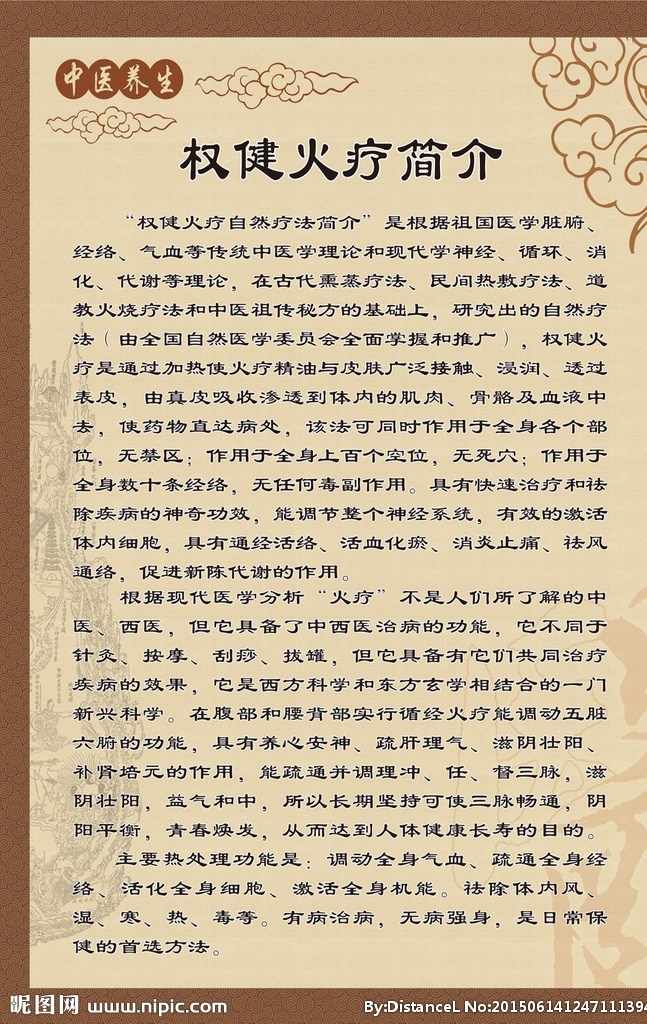 中医养生
权健火疗简介
“权健火疗自然疗法简介”是根据祖国医学脏腑、
经络、气血等传统中医学理论和现代学神经、循环、消
化、代谢等理论，在古代熏蒸疗法、民间热敷疗法、道
教火烧疗法和中医祖传秘方的基础上，研究出的自然疗
法（由全国自然医学委员会全面掌握和推广），权健火
疗是通过加热使火疗精油与皮肤广泛接触、浸润、透过
表皮，由真皮吸收渗透到体内的肌肉、骨骼及血液中
去，使药物直达病处，该法可同时作用于全身各个部
位，无禁区；作用于全身上百个空位，无死穴；作用于
全身数十条经络，无任何毒副作用。具有快速治疗和祛
除疾病的神奇功效，能调节整个神经系统，有效的激活
体内细胞，具有通经活络、活血化瘀、消炎止痛、祛风
通络，促进新陈代谢的作用。
根据现代医学分析“火疗”不是人们所了解的中
医、西医，但它具备了中西医治病的功能，它不同于
针灸、按摩、刮痧、拔罐，但它具备有它们共同治疗
疾病的效果，它是西方科学和东方玄学相结合的一门
新兴科学。在腹部和腰背部实行循经火疗能调动五脏
六腑的功能，具有养心安神、疏肝理气、滋阴壮阳、
补肾培元的作用，能疏通并调理冲、任、督三脉，滋
阴壮阳，益气和中，所以长期坚持可使三脉畅通，阴
阳平衡，青春焕发，从而达到人体健康长寿的目的。
主要热处理功能是：调动全身气血、疏通全身经
络、活化全身细胞、激活全身机能。祛除体内风、
湿、寒、热、毒等。有病治病，无病强身，是日常保
健的首选方法。
昵图网 www.nipic.com
By:DistanceL No:20150614124711394